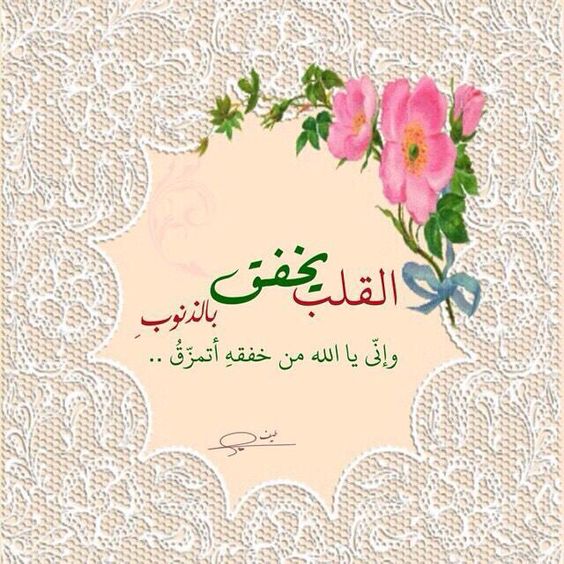 القلب يخفق بالذنوبِ
وإنّى يا الله من خفقهِ أتمزّقُ ..
طيف